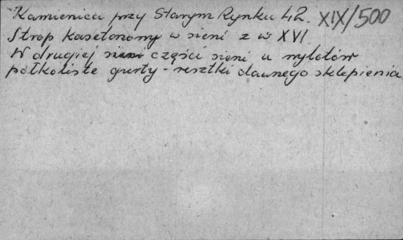 Kamienica przy Starym Rynku 42. XIX/500
Strop kasetonowy w sieni z w XVI.
W drugiej sieni części sieni u wylotów
półkoliste gurty - resztki dawnego sklepienia